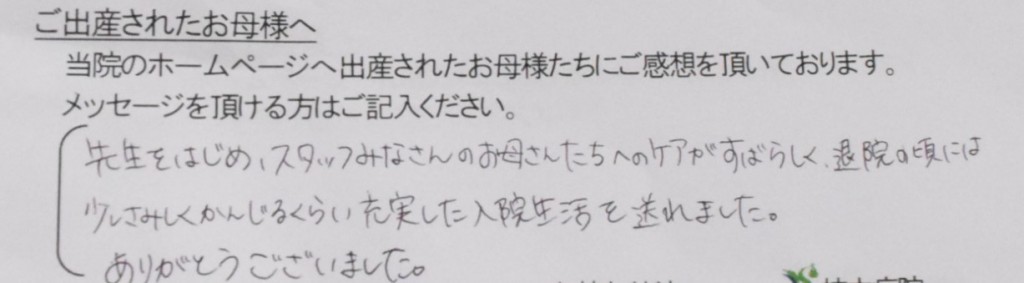 ご出産されたお母様へ
当院のホームページへ出産されたお母様たちにご感想を頂いております。
メッセージを頂ける方はご記入ください。
先生をはじめ、スタッフみなさんのお母さんたちへのケアがすばらしく、退院の頃には
少しさみしくかんじるくらい充実した入院生活を送れました。
ありがとうございました。